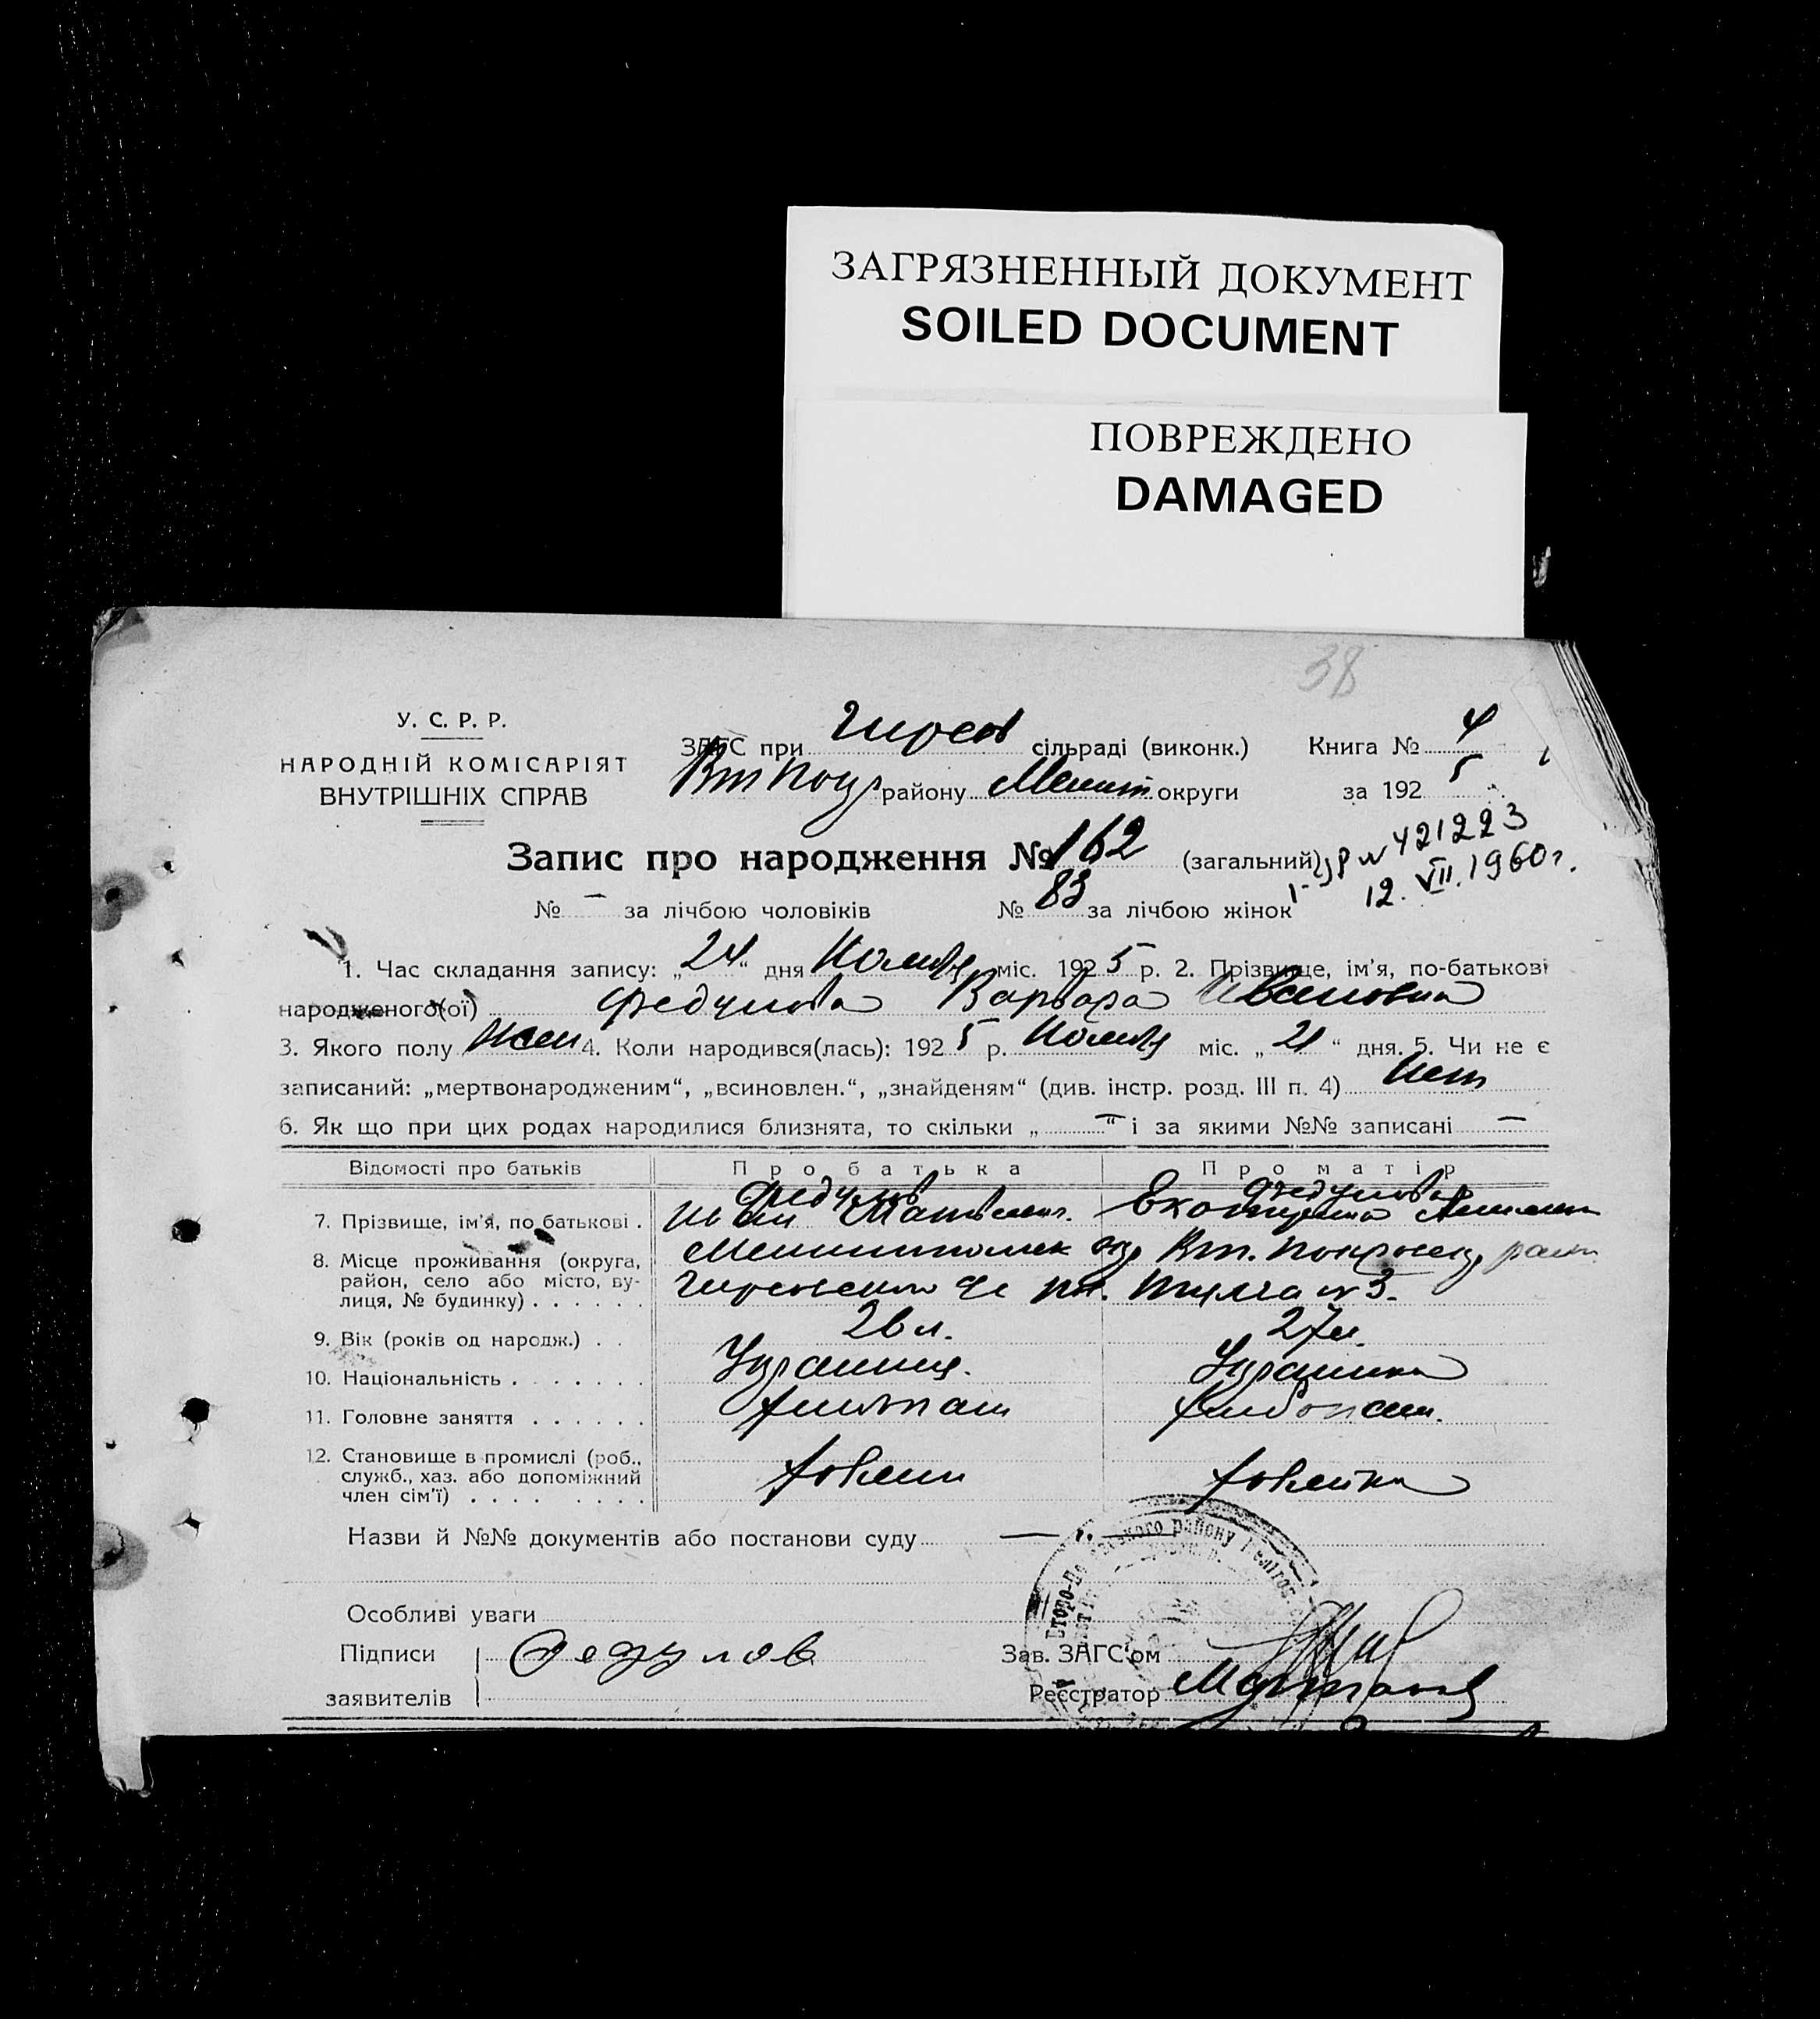 ЗАГРЯЗНЕННЫЙ ДОКУМЕНТ
SOILED DOCUMENT
ПОВРЕЖДЕНО
DAMAGED
38
У. С. Р. Р.
НАРОДНІЙ КОМІСАРІЯТ
ВНУТРІШНІХ СПРАВ
ЗАГС при Гирсов сільраді (виконк.) Книга № 4
району Мелит округи за 192 5
Запис про народження № 162 (загальний)
№ 421223
12. VII. 1960 г.
№ — за лічбою чоловіків № 83 за лічбою жінок
1. Час складання запису: „24“ дня міс. 1925 р. 2. Прізвище, ім'я, по-батькові
народженого(ої) Федулова Варвара Ивановна
3. Якого полу жен 4. Коли народився(лась): 1925 р. міс. „21“ дня. 5. Чи не є
записаний: „мертвонародженим“, „всиновлен.“, „знайденям“ (див. інстр. розд. III п. 4) Нет
6. Як що при цих родах народилися близнята, то скільки „—“ і за якими №№ записані —
Відомості про батьків Про батька Про матір
Федулов Федулова
7. Прізвище, ім'я, по батькові . Иван Екатерина
8. Місце проживання (округа,
район, село або місто, ву-
лиця, № будинку) . . . . . .
№ 3.
9. Вік (років од народж.) . . 26 л. 27 л.
10. Національність . . . . . . . Украинец. Украинка
11. Головне заняття . . . . . . хлебопаш хлебопаш.
12. Становище в промислі (роб.,
служб., хаз. або допоміжний
член сім'ї) . . . . . . . . хозяин хозяйка
Назви й №№ документів або постанови суду —
Особливі уваги
Підписи Федулов Зав. ЗАГС'ом
заявителів Реєстратор